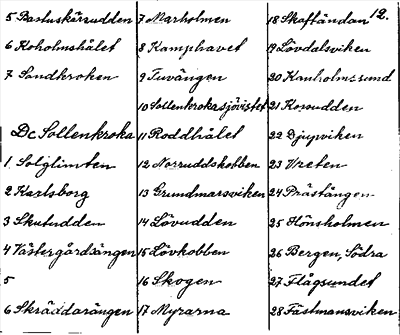 5 Bastuskärsudden
6 Koholmshålet
7 Sandkroken
Dc Sollenkroka
1 Solglimten
2 Karlsborg
3 Skutudden
4 Västergårdsängen
5
6 Skräddarängen
7 Marholmen
8 Kamphavet
9 Tuvängen
10 Sollenkrokasjövistet
11 Roddhålet
12 Norruddskobben
13 Grundmarsviken
14 Lövudden
15 Lövkobben
16 Skogen
17 Myrarna
12.
18 Skaftändan
19 Lövdalsviken
20 Kanholmssund
21 Korsudden
22 Djupviken
23 Vreten
24 Prästängen
25 Hönsholmen
26 Bergen, Södra
27 Flågsundet
28 Fästmansviken